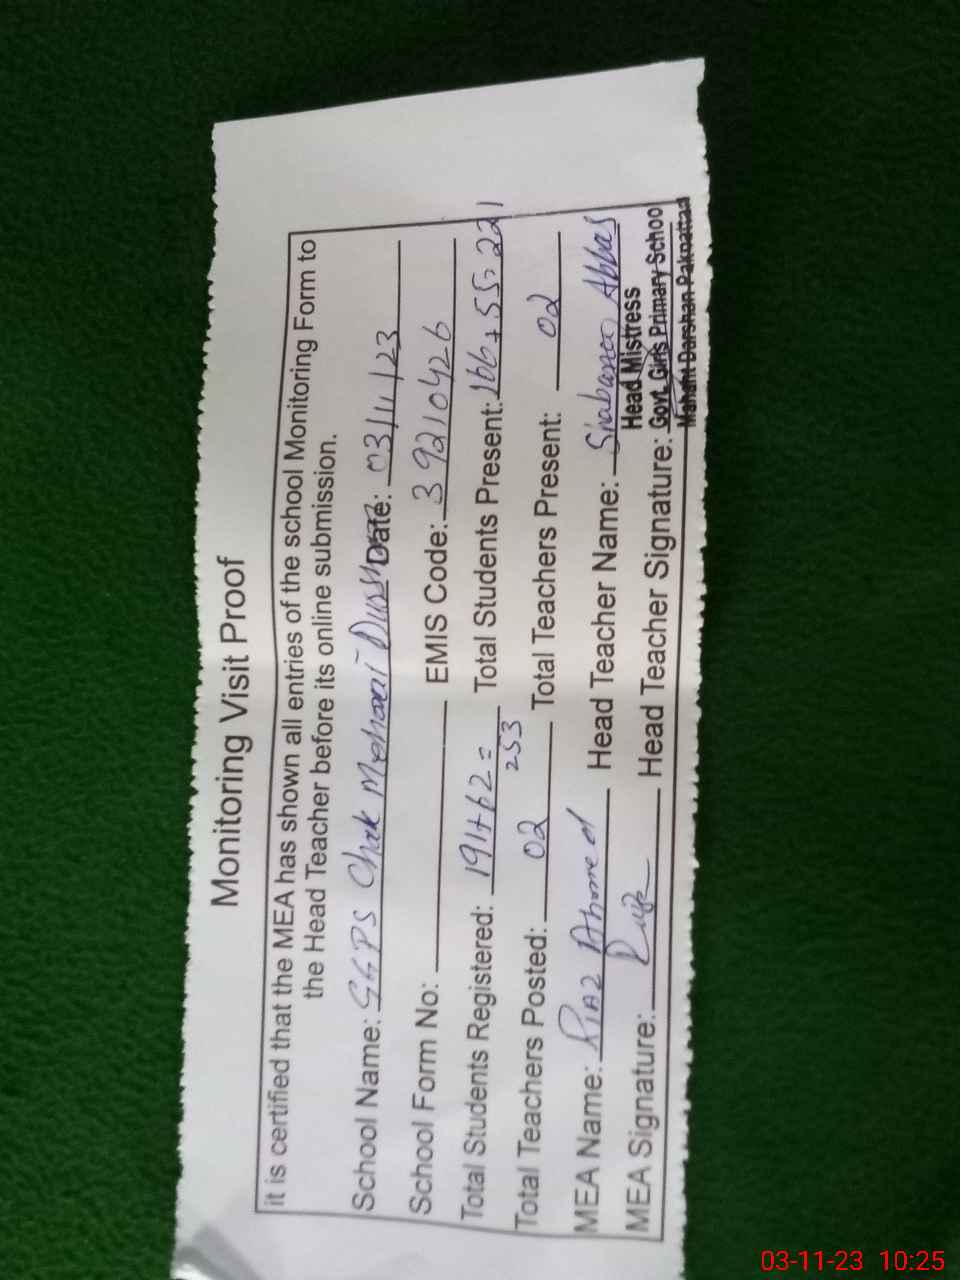 Monitoring Visit Proof
it is certified that the MEA has shown all entries of the school Monitoring Form to
the Head Teacher before its online submission.
School Name: GGPS Chak Mahant Date: 03/11/23
School Form No: EMIS Code: 39210426
Total Students Registered: 191+62= 253 Total Students Present: 166+55=221
Total Teachers Posted: 02 Total Teachers Present: 02
MEA Name: Riaz Ahmed Head Teacher Name: Shabana Abbas
MEA Signature: Head Teacher Signature:
Head Mistress
Govt. Girls Primary Schoo
Mahant Darshan Pakpattan
03-11-23 10:25